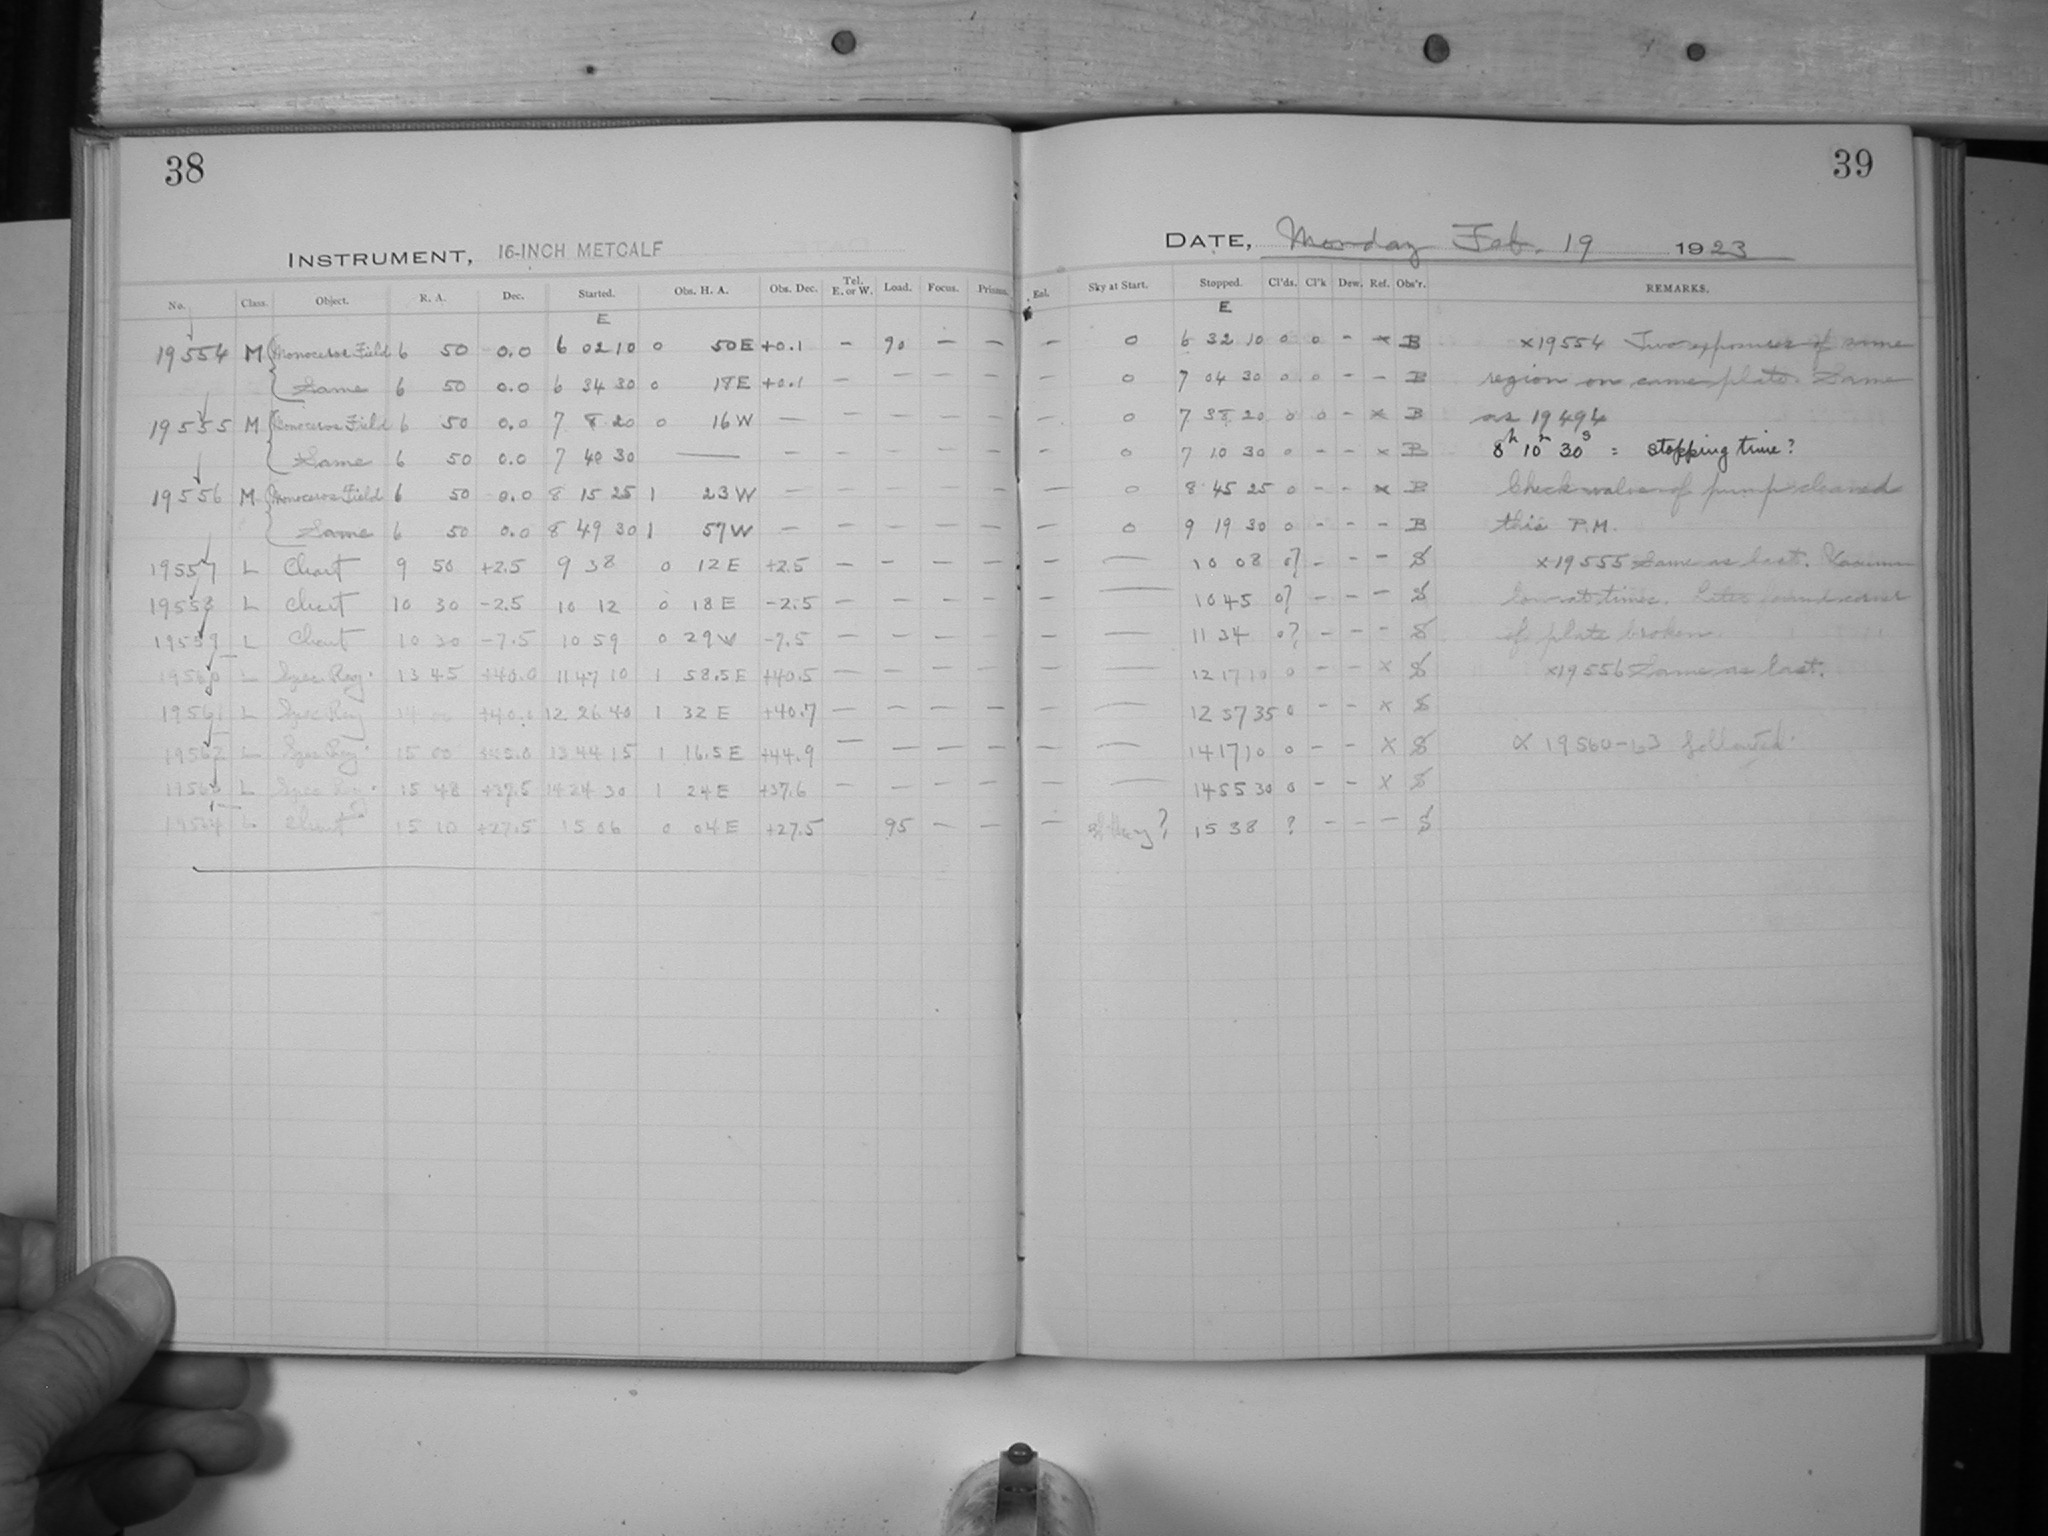 38
39
INSTRUMENT, 16-INCH METCALF
DATE, Monday Feb. 19 1923
No. Class. Object. R. A. Dec. Started. Obs. H. A. Obs. Dec. Tel. E. or W. Load. Focus. Prisms. Enl. Sky at Start. Stopped. Cl'ds. Cl'k Dew. Ref. Obs'r. REMARKS.
E E
19554 M Monoceros Field 6 50 0.0 6 02 10 0 50E +0.1 - 90 - - - 0 6 32 10 0 0 - x B x19554 Two exposures of same
Same 6 50 0.0 6 34 30 0 18E +0.1 - - - - - 0 7 04 30 0 0 - - B region on same plate. Same
19555 M Monoceros Field 6 50 0.0 7 8 20 0 16W - - - - - - 0 7 38 20 0 0 - x B as 19494
Same 6 50 0.0 7 40 30 — - - - - - - 0 7 10 30 0 - - x B 8h 10m 30s = stopping time?
19556 M Monoceros Field 6 50 0.0 8 15 25 1 23W - - - - - - 0 8 45 25 0 - - x B Check valve of pump cleaned
Same 6 50 0.0 8 49 30 1 57W - - - - - - 0 9 19 30 0 - - - B this P.M.
19557 L Chart 9 50 +2.5 9 38 0 12E +2.5 - - - - - — 10 08 0? - - - S x19555 Same as last. Vacuum
19558 L Chart 10 30 -2.5 10 12 0 18E -2.5 - - - - - — 10 45 0? - - - S low at times. Later found corner
19559 L Chart 10 30 -7.5 10 59 0 29W -7.5 - - - - - — 11 34 0? - - - S of plate broken.
19560 L Spec. Reg. 13 45 +40.0 11 47 10 1 58.5E +40.5 - - - - - — 12 17 10 0 - - x S x19556 Same as last.
19561 L Spec. Reg 12 26 40 1 32E +40.7 - - - - - — 12 57 35 0 - - x S
19562 L Spec. Reg. 15 00 +45.0 13 44 15 1 16.5E +44.9 - - - - - — 14 17 10 0 - - x S x 19560-63 followed.
19563 L Spec. Reg. 15 48 +37.5 14 24 30 1 24E +37.6 - - - - - — 14 55 30 0 - - x S
19564 L Chart 15 10 +27.5 15 06 0 04E +27.5 95 - - - ? 15 38 ? - - - S